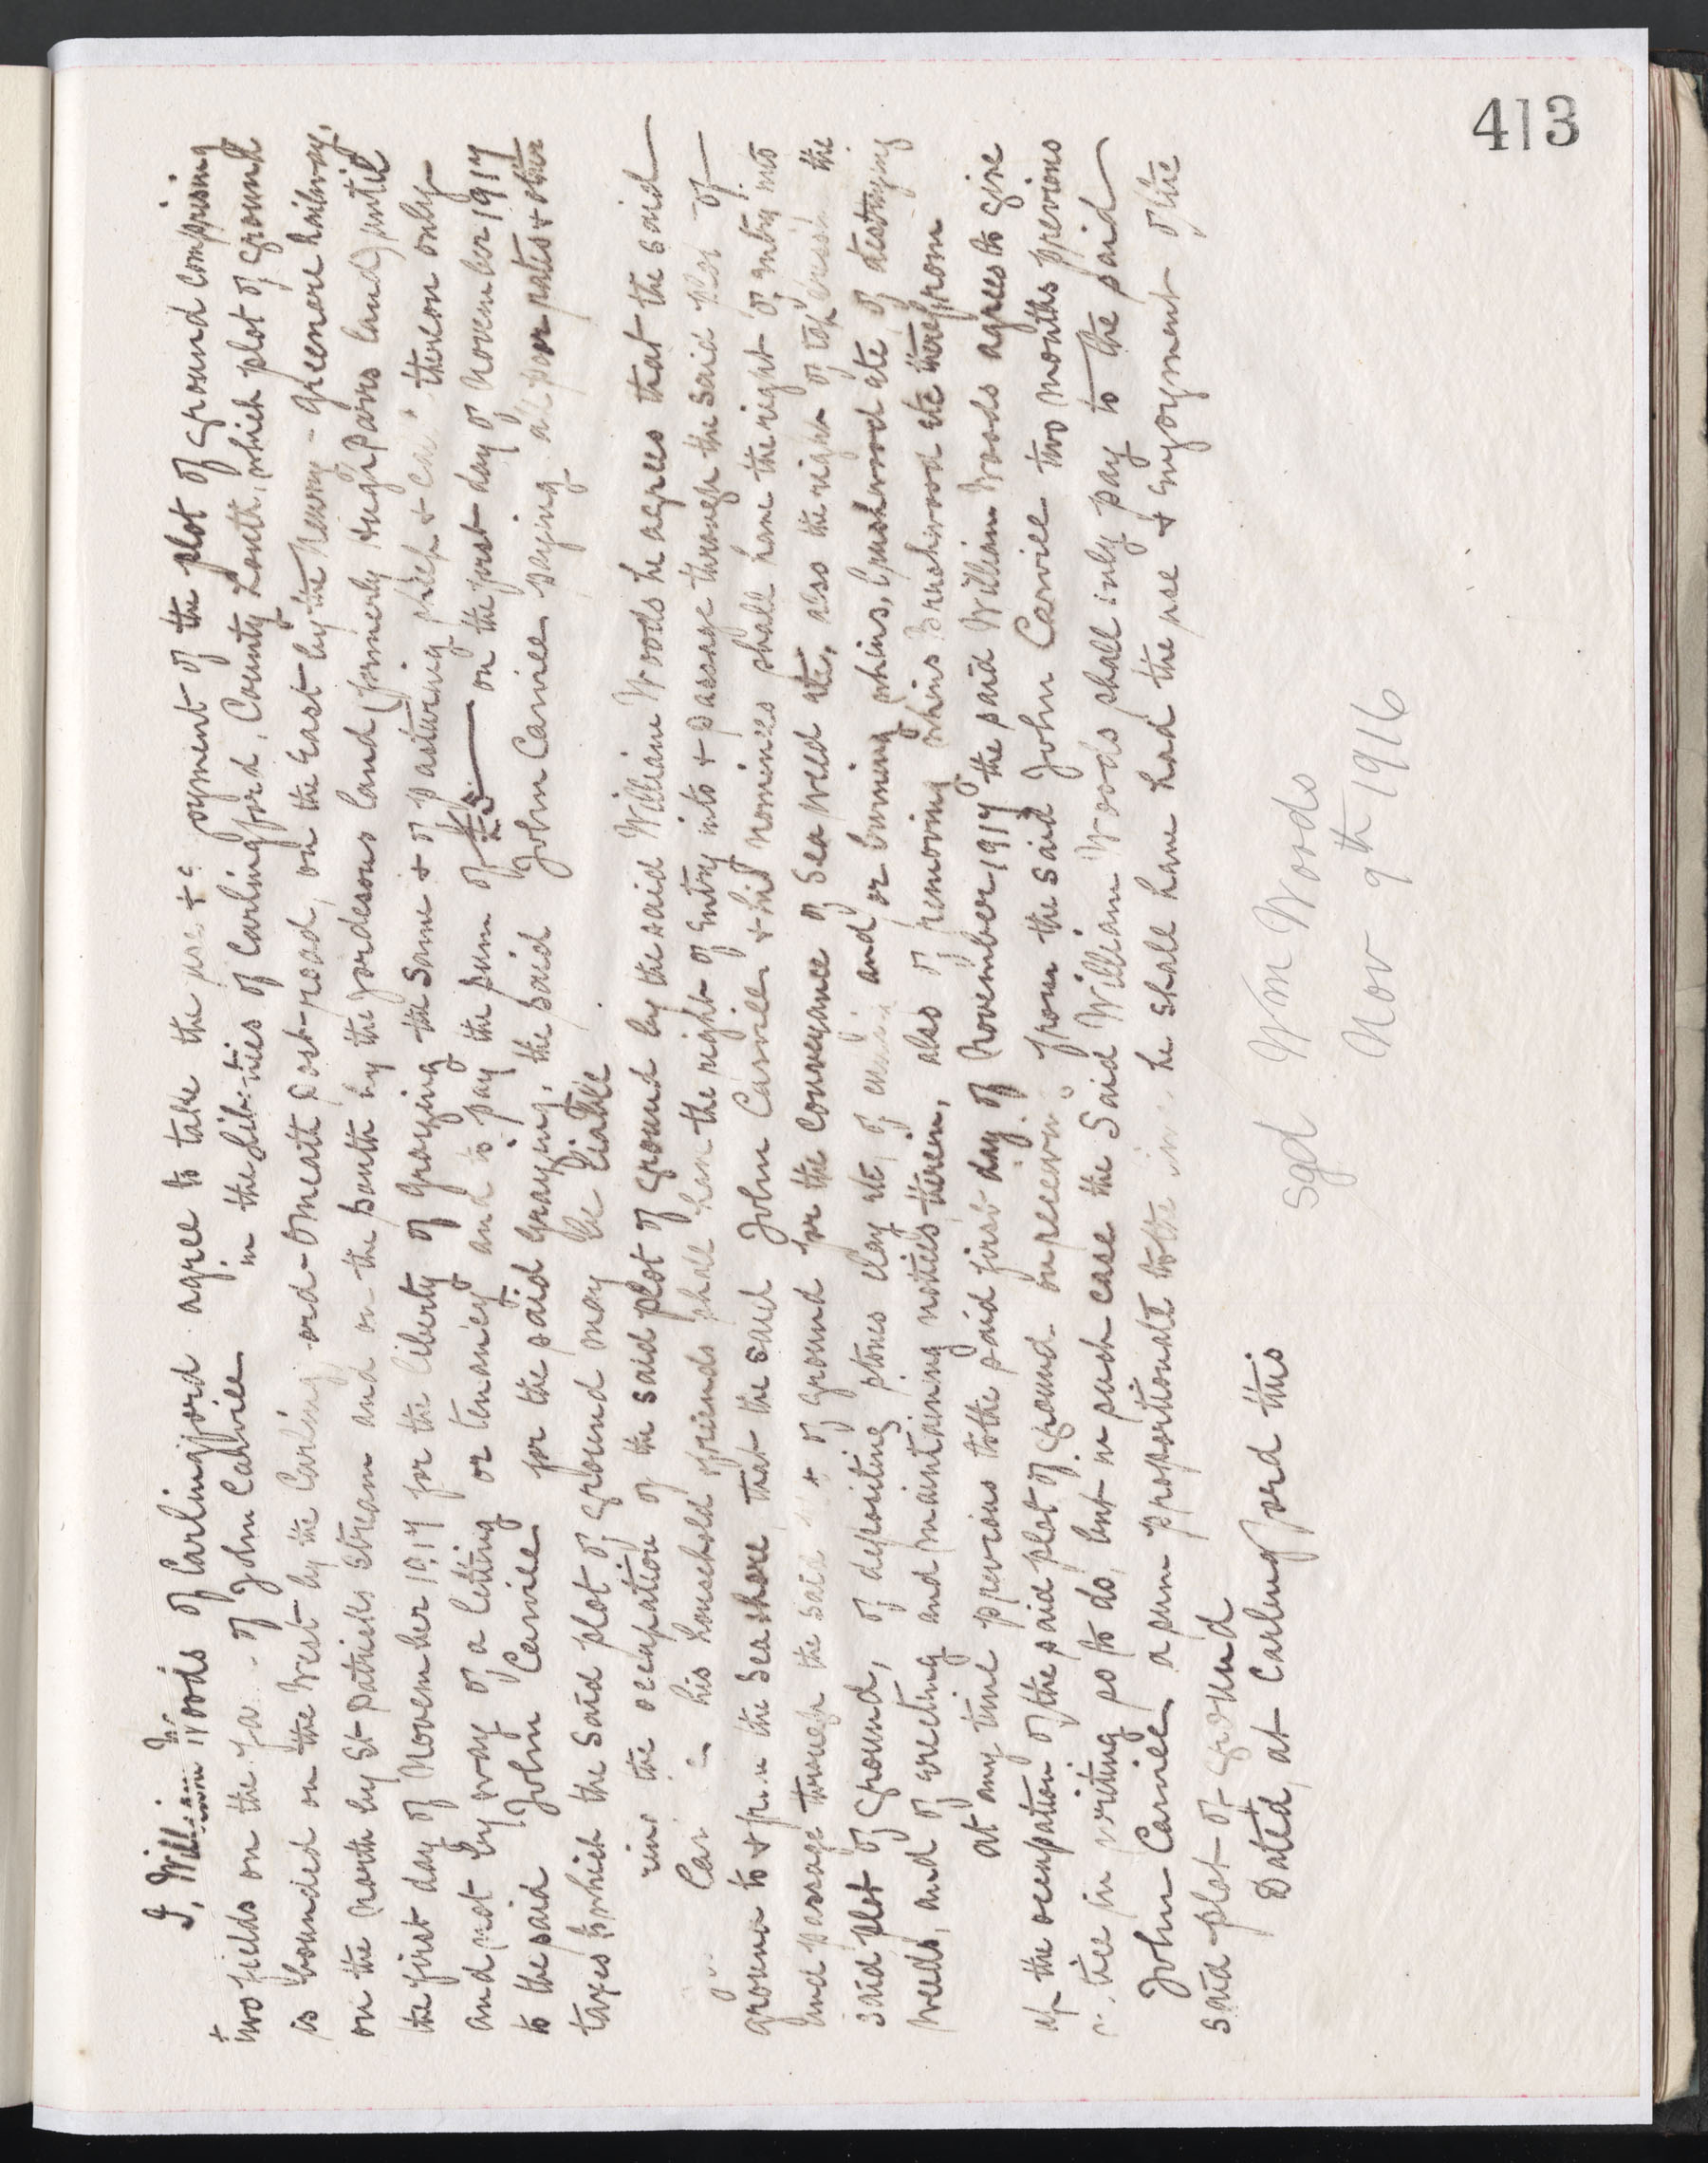 413
I, William Woods of Carlingford agree to take the use + enjoyment of the plot of ground comprising
two fields on the of John Carvill in the Liberties of Carlingford, County Louth, which plot of ground
is bounded on the West by the Carlingford-Omeath post-road, on the East by the Newry-Greenore Railway,
on the north by St Patricks Stream and on the south by the land (formerly Hugh Parrs land) until
the first day of November 1917 for the liberty of grazing the same + of pasturing sheep + thereon only
and not by way of a letting or tenancy and to pay the sum of on the first day of November 1917
to the said John Carvill for the said grazing, the said John Carvill paying all poor rates + other
taxes to which the said plot of ground may be liable.
the occupation of the said plot of ground by the said William Woods he agrees that the said
his household friends shall have the right of entry into + passage through the said plot of
ground to + from the sea shore that the said John Carvill + his nominees shall have the right of entry into
and passage through the said of ground for the conveyance of sea weed etc, also the right of the
said plot of ground, of depositing stones clay etc, of and or burning whins, brushwood etc of destroying
weeds, and of erecting and maintaining notices therein, also of removing whins brushwood etc therefrom
at any time previous to the said first day of November 1917 the said William Woods agrees to give
up the occupation of the said plot of ground on receiving from the said John Carvill two months previous
notice in writing so to do, but in such case the said William Woods shall only pay to the said
John Carvill a sum proportionate to the time he shall have had the use + enjoyment of the
said plot of ground
Dated at Carlingford this
sgd Wm Woods
Nov 9th 1916